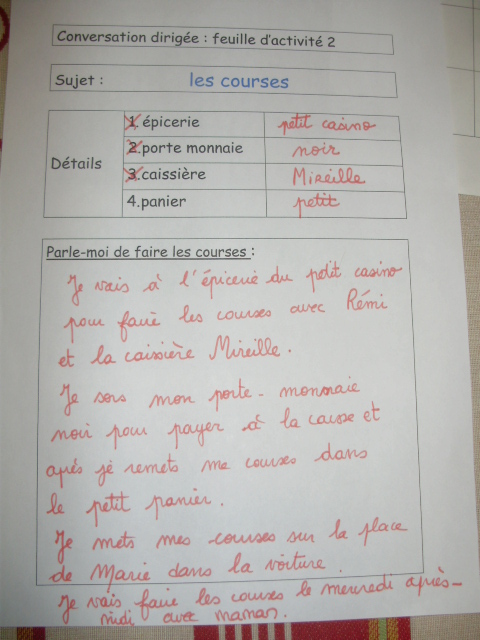 Conversation dirigée : feuille d'activité 2
Sujet : les courses
Détails
1. épicerie petit casino
2. porte monnaie noir
3. caissière Mireille
4. panier petit
Parle-moi de faire les courses :
Je vais à l'épicerie du petit casino
pour faire les courses avec Rémi
et la caissière Mireille.
Je sors mon porte-monnaie
noir pour payer à la caisse et
après je remets me courses dans
le petit panier.
Je mets mes courses sur la place
de Marie dans la voiture.
Je vais faire les courses le mercredi après-
midi avec maman.